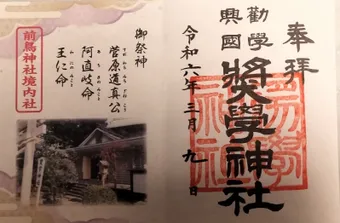 奉拝
勸學
興國
奬學神社
令和六年三月九日
御祭神
菅原道真公
阿直岐命
王仁命
前鳥神社境内社